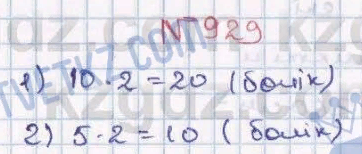 №929
1) 10·2=20 (бөлік)
2) 5·2=10 (бөлік)